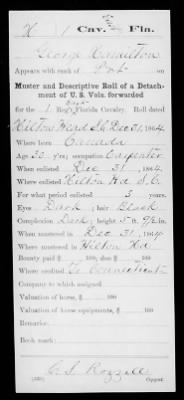 H | 1 | Cav. | Fla.
George Hamilton
Appears with rank of Pvt on
Muster and Descriptive Roll of a Detach-
ment of U. S. Vols. forwarded
for the 1 Reg't Florida Cavalry. Roll dated
Hilton Head S.C. Dec 31, 1864.
Where born Canada
Age 23 y'rs; occupation Carpenter
When enlisted Dec 31, 1864
Where enlisted Hilton Hd S.C.
For what period enlisted 3 years.
Eyes Dark; hair Black
Complexion Dark; height 5 ft. 9½ in.
When mustered in Dec 31, 1864
Where mustered in Hilton Hd
Bounty paid $ 100; due $ 100
Where credited To Connecticut
Company to which assigned
Valuation of horse, $ 100
Valuation of horse equipments, $ 100
Remarks:
Book mark:
Copyist.